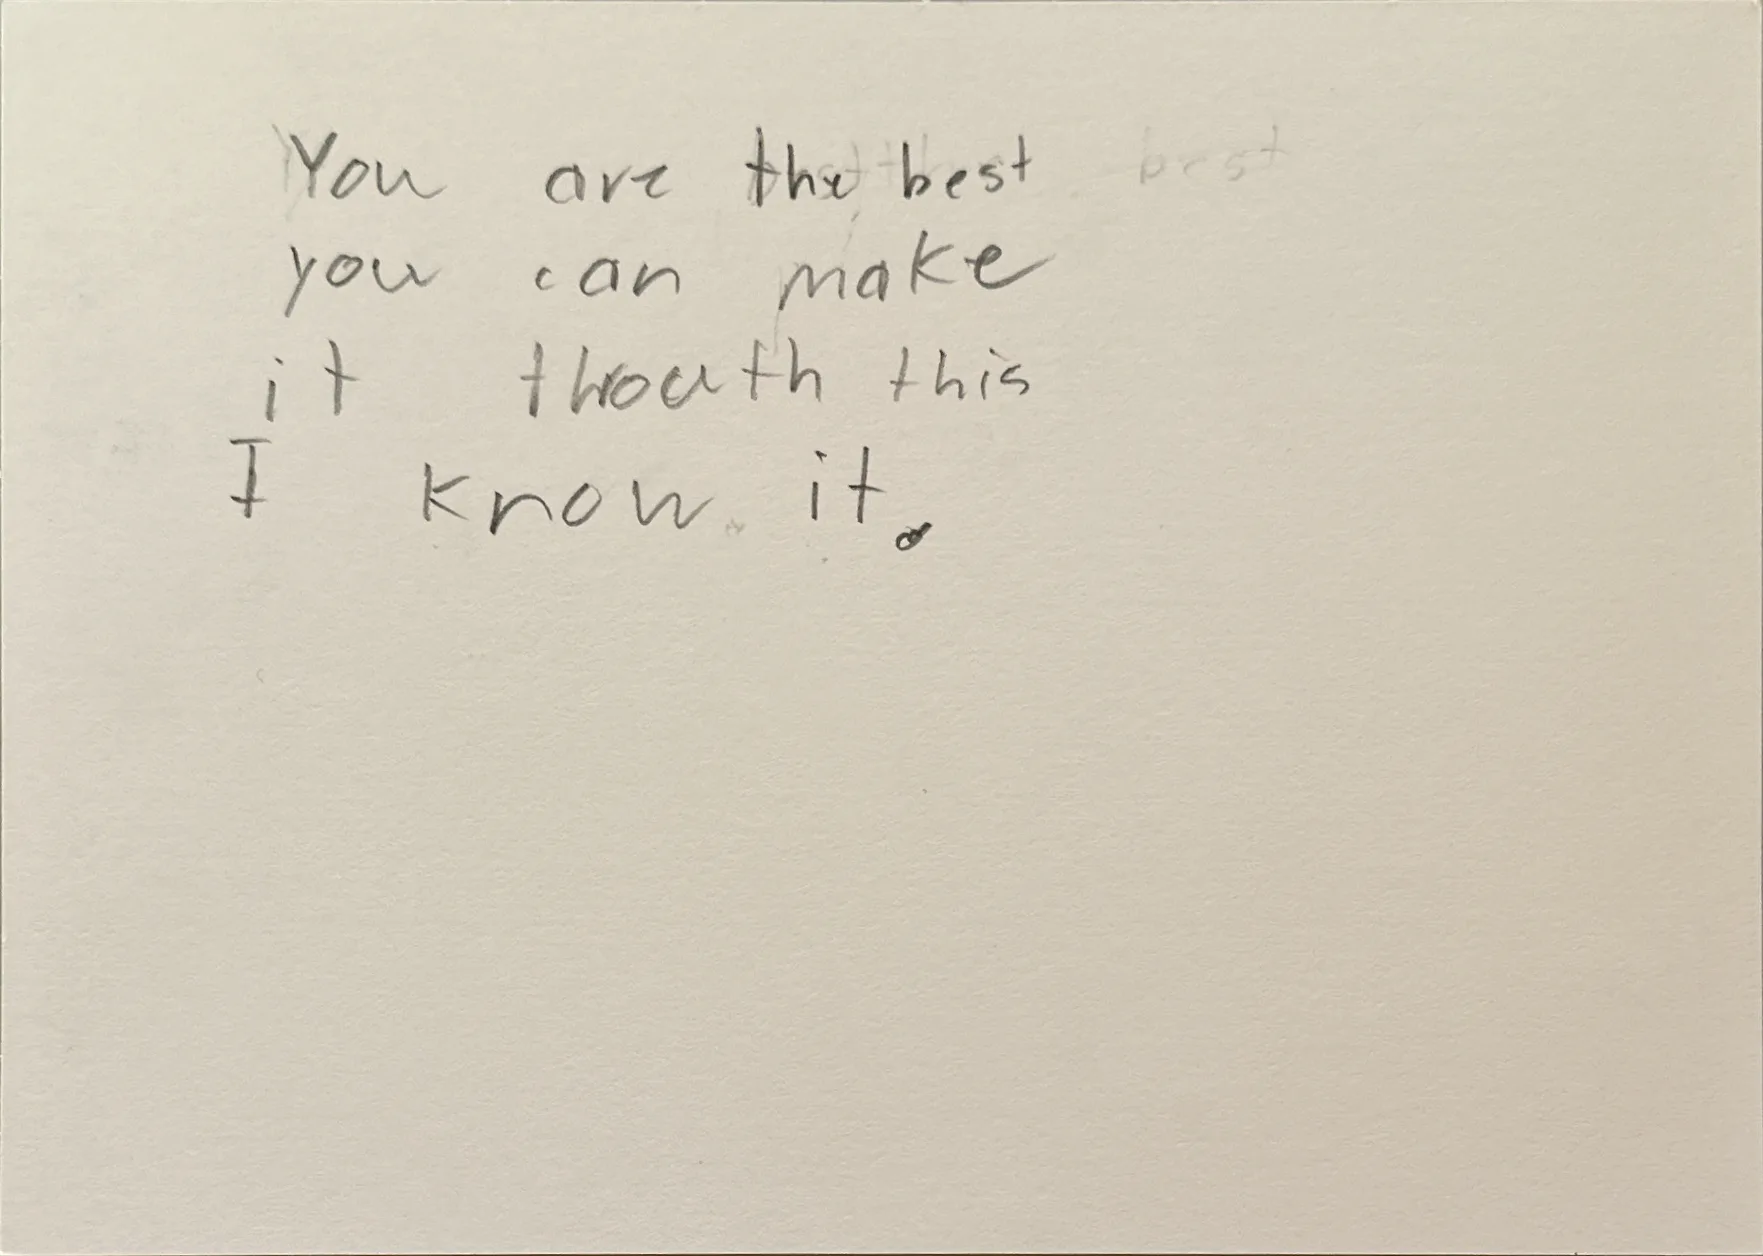 You are the best
you can make
it throuth this
I know it.